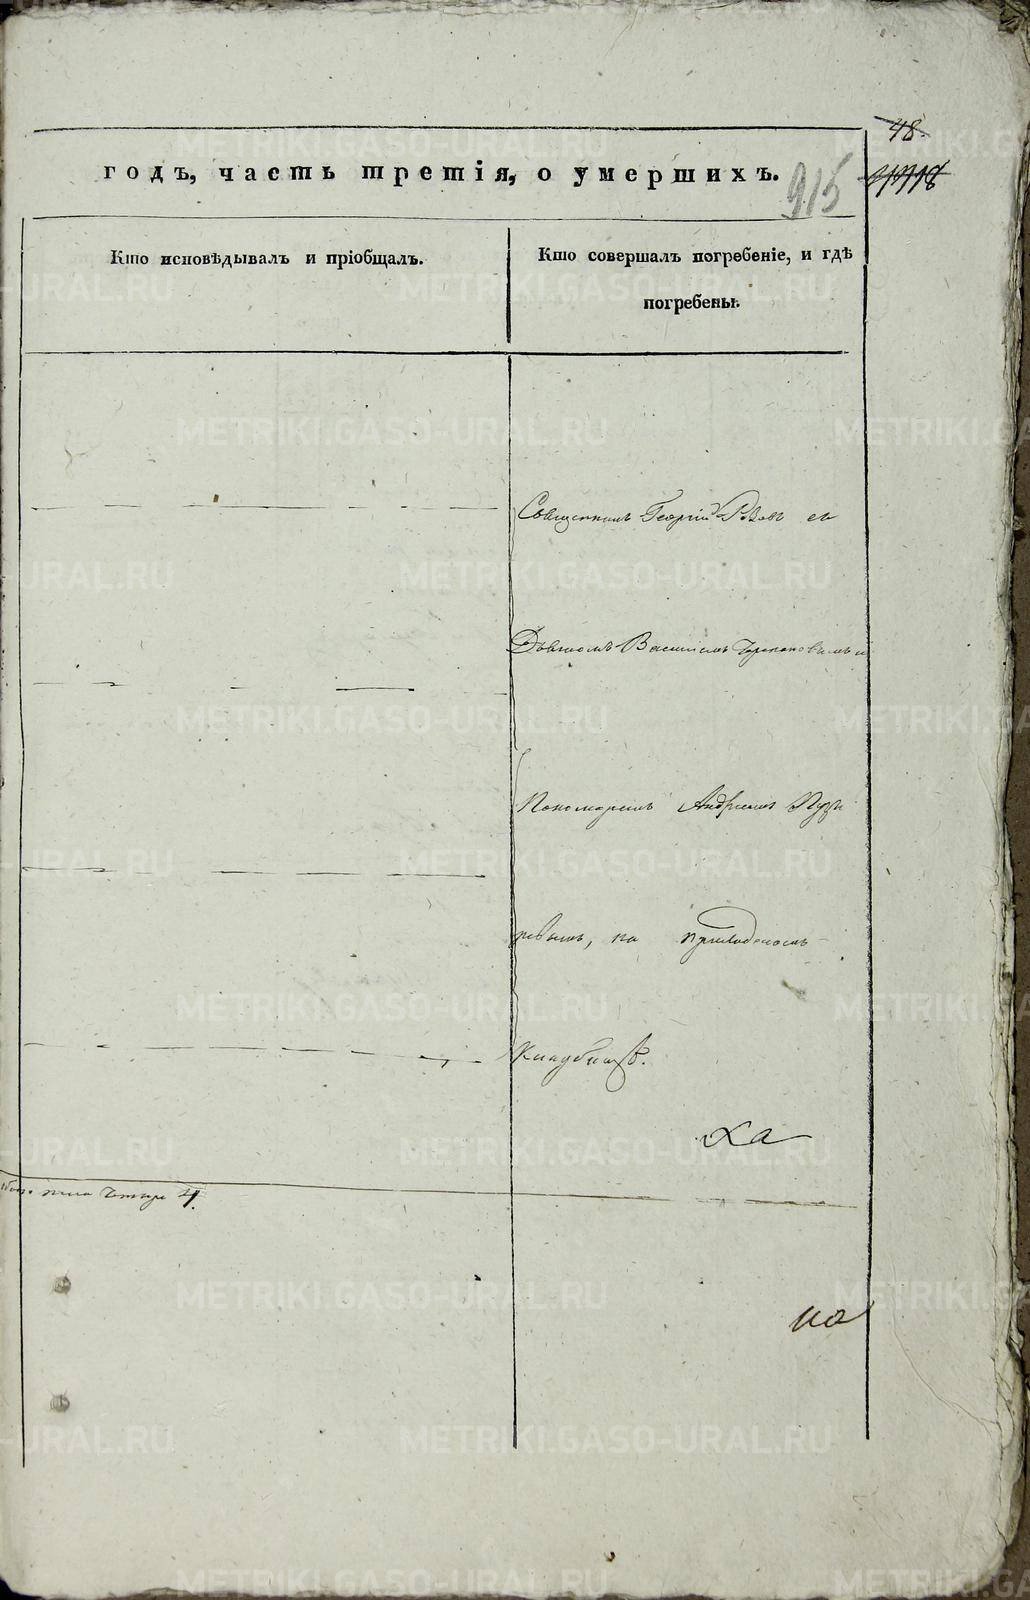 48
годъ, часть третія, о умершихъ.
915
Кто исповѣдывалъ и пріобщалъ.
Кто совершалъ погребеніе, и гдѣ
погребены.
Священникъ Георгій съ
Дьячкомъ Василіемъ
Пономаремъ Андреемъ Пузы
ревымъ, на приходскомъ
Кладбищѣ.
пола Четыре 4.
METRIKI.GASO-URAL.RU